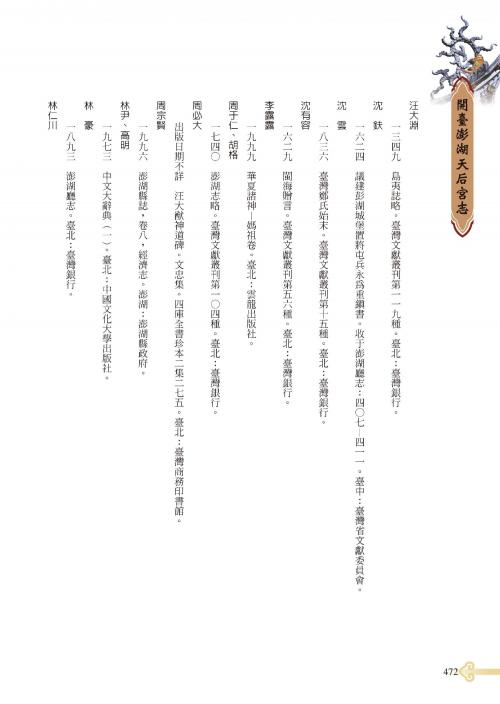 開臺澎湖天后宮志
汪大淵
一三四九　島夷誌略。臺灣文獻叢刊第一一九種。臺北：臺灣銀行。
沈　鈇
一六二四　議建彭湖城堡置將屯兵永為重鎮書。收于澎湖廳志：四〇七—四一一。臺中：臺灣省文獻委員會。
沈　雲
一八三六　臺灣鄭氏始末。臺灣文獻叢刊第十五種。臺北：臺灣銀行。
沈有容
一六二九　閩海贈言。臺灣文獻叢刊第五六種。臺北：臺灣銀行。
李露露
一九九九　華夏諸神—媽祖卷。臺北：雲龍出版社。
周于仁、胡格
一七四〇　澎湖志略。臺灣文獻叢刊第一〇四種。臺北：臺灣銀行。
周必大
出版日期不詳　汪大猷神道碑。文忠集。四庫全書珍本二集二七五。臺北：臺灣商務印書館。
周宗賢
一九九六　澎湖縣誌，卷八，經濟志。澎湖：澎湖縣政府。
林尹、高明
一九七三　中文大辭典（一）。臺北：中國文化大學出版社。
林　豪
一八九三　澎湖廳志。臺北：臺灣銀行。
林仁川
472